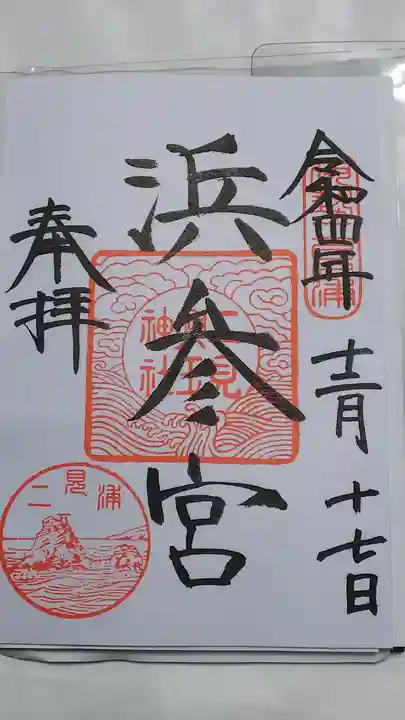 令和四年
十二月十七日
浜参宮
奉拝
二見
興玉
神社
二見浦